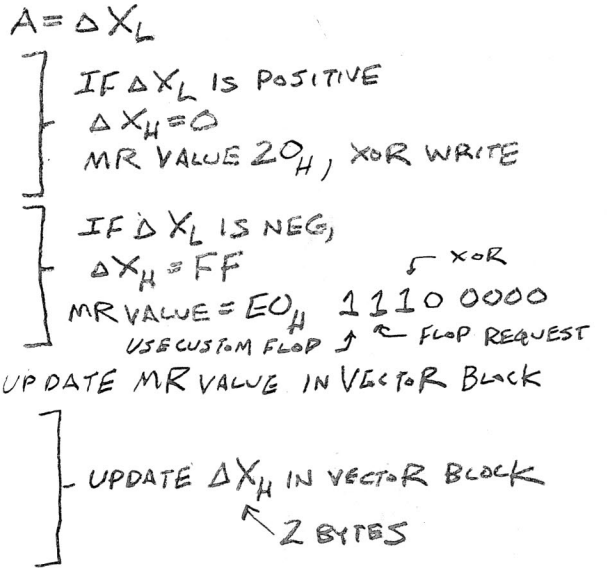 A = Δ X_L
IF Δ X_L IS POSITIVE
Δ X_H = 0
MR VALUE 20_H, XOR WRITE
IF Δ X_L IS NEG,
Δ X_H = FF
XOR
MR VALUE = E0_H 1110 0000
USE CUSTOM FLOP FLOP REQUEST
UPDATE MR VALUE IN VECTOR BLOCK
UPDATE Δ X_H IN VECTOR BLOCK
2 BYTES